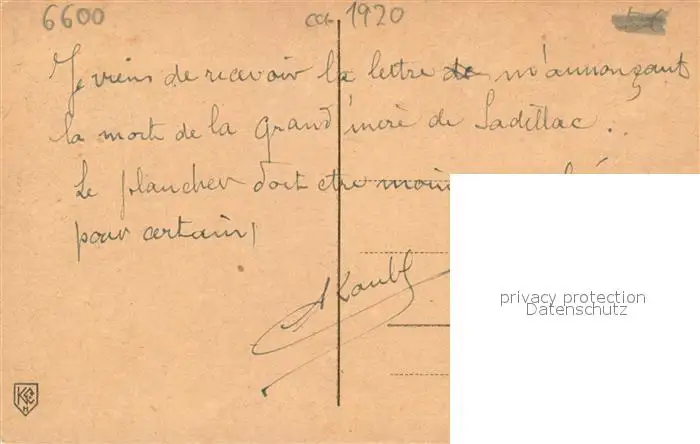 6600 ca. 1920
Je viens de recevoir la lettre de m'annonçant
la mort de la grand'mère de Sadillac..
Le plancher doit etre moin
pour certain!
privacy protection
Datenschutz